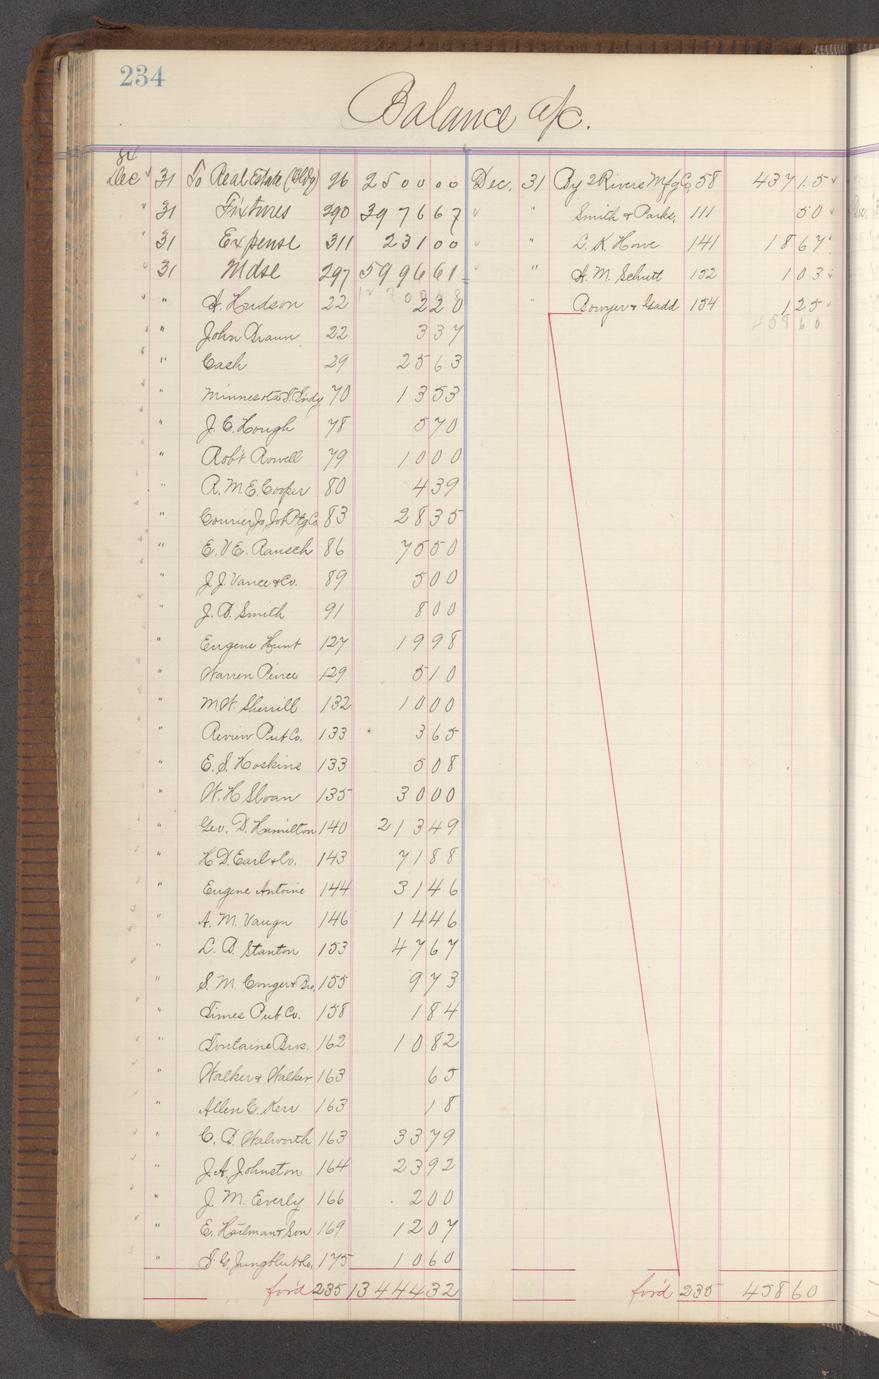 234
Balance a/c.
84
Dec 31 To Real Estate (Bldg) 26 2500 00 Dec. 31 By 2 Rivers Mfg Co 58 437 15
" 31 Fixtures 290 3976 67 " Smith & Parks, 111 50
31 Expense 311 231 00 " L. K. Howe 141 18 67
31 Mdse 297 5996 61 " A. M. Schutt 152 1 03
" A. Hudson 22 2 20 " Bowyer & Gadd 154 1 25
458 60
" John Braun 22 3 37
" Cash 29 25 63
" Minnesota 70 13 53
" J. C. Hough 78 5 70
" Rob't Rowell 79 10 00
" R. M. E. Cooper 80 4 39
" Courier Jo. Job Ptg Co 83 28 35
" E. V. E. Rausch 86 75 50
" J. J. Vance & Co. 89 5 00
" J. D. Smith 91 8 00
" Eugene Hunt 127 19 98
" Warren Pierce 129 5 10
" M. W. Sherrill 132 10 00
" Review Pub Co. 133 3 65
" E. S. Hoskins 133 5 08
" W. H. Sloan 135 30 00
" Geo. D. Hamilton 140 213 49
" H. D. Earl & Co. 143 71 88
" Eugene Antoine 144 31 46
" A. M. Vaugn 146 14 46
" L. D. Stanton 153 47 67
" S. M. Conger & Bro. 155 9 73
" Times Pub Co. 158 1 84
" Fontaine Bros. 162 10 82
" Walker & Walker 163 65
" Allen C. Kerr 163 18
" C. D. Walworth 163 33 79
" J. A. Johnston 164 23 92
" J. M. Everly 166 2 00
" E. Hartman & Son 169 12 07
" S. G. Jungblut & Co. 175 10 60
for'd 235 13444 32 for'd 235 458 60